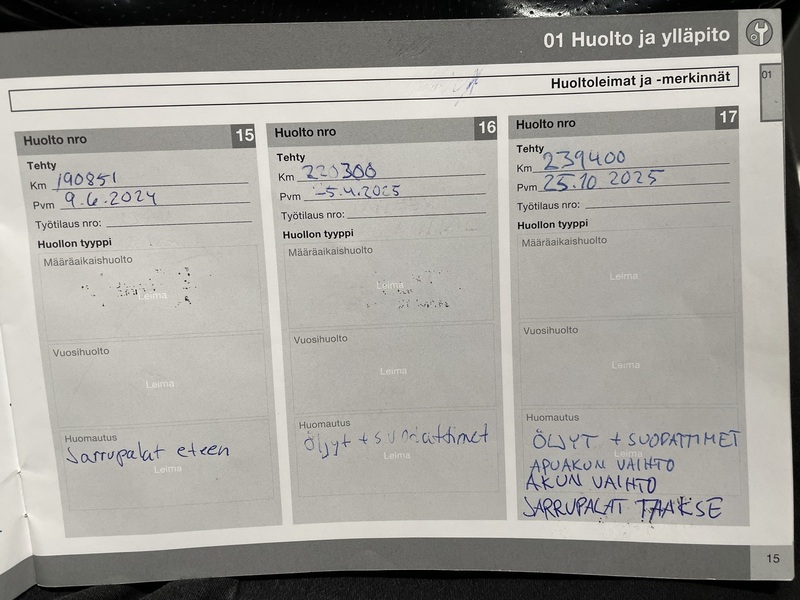 01 Huolto ja ylläpito
01
Huoltoleimat ja -merkinnät
Huolto nro 15
Tehty
Km 190851
Pvm 9.6.2024
Työtilaus nro:
Huollon tyyppi
Määräaikaishuolto
Leima
Vuosihuolto
Leima
Huomautus
Jarrupalat eteen
Leima
Huolto nro 16
Tehty
Km 220300
Pvm 5.4.2025
Työtilaus nro:
Huollon tyyppi
Määräaikaishuolto
Leima
Vuosihuolto
Leima
Huomautus
Öljyt + suodattimet
Leima
Huolto nro 17
Tehty
Km 239400
Pvm 25.10 2025
Työtilaus nro:
Huollon tyyppi
Määräaikaishuolto
Leima
Vuosihuolto
Leima
Huomautus
ÖLJYT + SUODATTIMET
Leima
APUAKUN VAIHTO
AKUN VAIHTO
JARRUPALAT TAAKSE
15